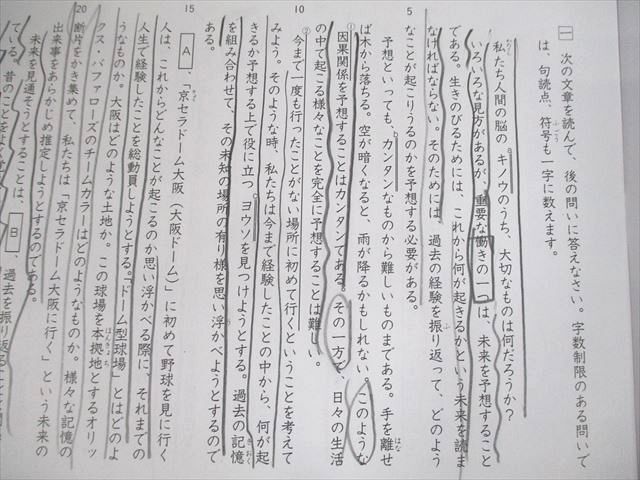 一 次の文章を読んで、後の問いに答えなさい。字数制限のある問いで
は、句読点、符号も一字に数えます。
私たち人間の脳のaキノウのうち、大切なものは何だろうか?
いろいろな見方があるが、重要な働きの一つは、未来を予想すること
である。生きのびるためには、これから何が起きるかという未来を読ま
なければならない。そのためには、過去の経験を振り返って、どのよう
なことが起こりうるのかを予想する必要がある。
予想といっても、bカンタンなものから難しいものまである。手を離せ
ば木から落ちる。空が暗くなると、雨が降るかもしれない。このような
①因果関係を予想することはカンタンである。その一方で、日々の生活
の中で起こる様々なことを完全に予想することは難しい。
②今まで一度も行ったことがない場所に初めて行くということを考えて
みよう。そのような時、私たちは今まで経験したことの中から、何が起
きるか予想する上で役に立つcヨウソを見つけようとする。過去の記憶
を組み合わせて、その未知の場所の有り様を思い浮かべようとするので
ある。
A、「京セラドーム大阪(大阪ドーム)」に初めて野球を見に行く
人は、これからどんなことが起こるのか思い浮かべる際に、それまでの
人生で経験したことを総動員しようとする。「ドーム型球場」とはどのよ
うなものか。大阪はどのような土地か。この球場を本拠地とするオリッ
クス・バファローズのチームカラーはどのようなものか。様々な記憶の
断片をかき集めて、私たちは「京セラドーム大阪に行く」という未来の
出来事をあらかじめ推定しようとするのである。
未来を見通そうとすることは、B、過去を振り返ること
ている。昔のことをよく
5
10
15
20